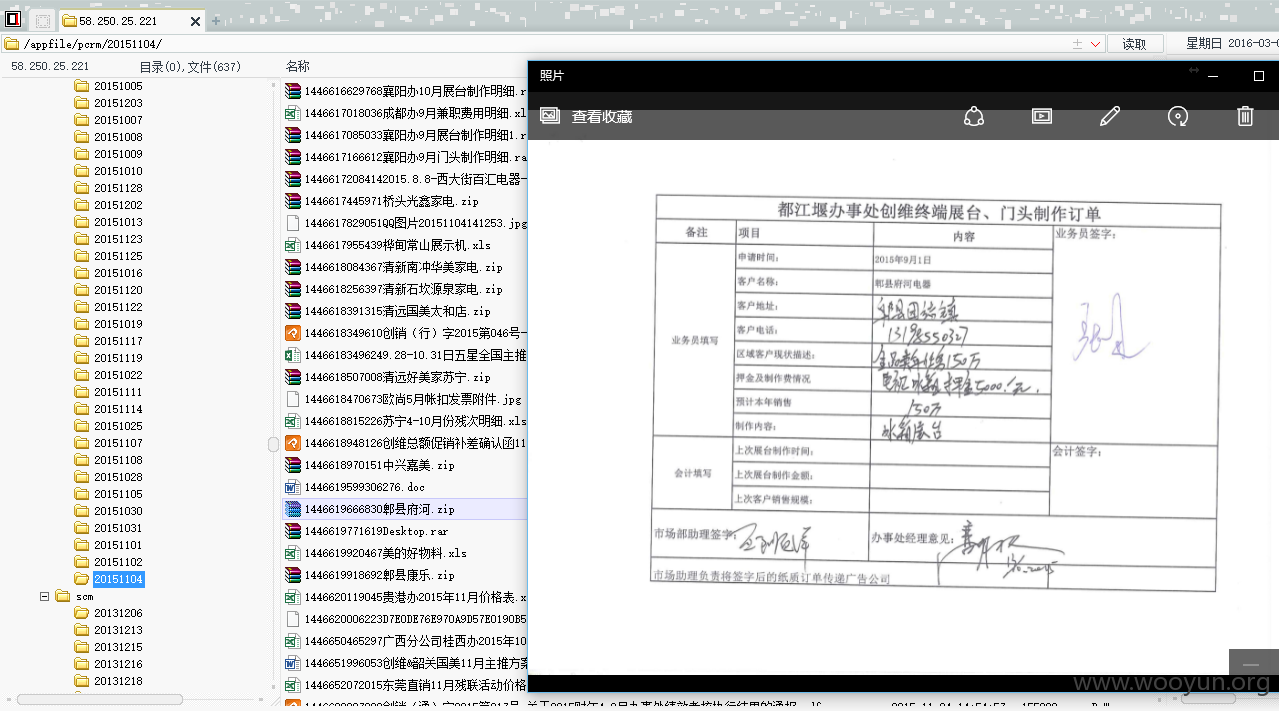 58.250.25.221
/appfile/pcrm/20151104/
读取
星期日 2016-03-0
58.250.25.221
目录(0),文件(637)
名称
20151005
20151203
20151007
20151008
20151009
20151010
20151128
20151202
20151013
20151123
20151125
20151016
20151120
20151122
20151019
20151117
20151119
20151022
20151111
20151114
20151025
20151107
20151108
20151028
20151105
20151030
20151031
20151101
20151102
20151104
scm
20131206
20131213
20131215
20131216
20131218
1446616629768襄阳办10月展台制作明细.r
1446617018036成都办9月兼职费用明细.xl
1446617085033襄阳办9月展台制作明细1.r
1446617166612襄阳办9月门头制作明细.ra
14466172084142015.8.8-西大街百汇电器-
1446617445971桥头光鑫家电.zip
1446617845490QQ图片20151104141253.jpg
1446617959539桦甸常山展示机.xls
1446618084367清新南冲华美家电.zip
1446618256397清新石坎源泉家电.zip
1446618391315清远国美大和店.zip
1446618349610创销（行）字2015第046号-
1446618349624 9.28-10.31日五星全国主推
1446618507638清远好美家苏宁.zip
1446618470673欧尚5月帐扣发票附件.jpg
1446618815226苏宁4-10月份残次明细.xls
1446618948126创维总额促销补差确认函11
1446618970151中兴嘉美.zip
1446619589306276.doc
郫县府河.zip
1446619771819Desktop.rar
1446619920467美的好物料.xls
郫县康乐.zip
1446620119045贵港办2015年11月价格表.x
1446620006223D7E0DE76E970A9D57E0190B5
1446650465297广西分公司桂西办2015年10
1446651996053创维&韶关国美11月主推方案
1446652072015东莞直销11月残联活动价格
照片
查看收藏
都江堰办事处创维终端展台、门头制作订单
备注 项目 内容 业务员签字：
业务员填写
申请时间： 2015年9月1日
客户名称： 郫县府河电器
客户地址： 郫县团结镇
客户电话： 13198550327
区域客户现状描述： 全品类年销售150万
押金及制作费情况 电视冰箱押金5000.1元.
预计本年销售 150万
制作内容： 冰箱展台
会计填写
上次展台制作时间： 会计签字：
上次展台制作金额：
上次客户销售规模：
市场部助理签字： 办事处经理意见：
市场助理负责将签字后的纸质订单传递广告公司
www.wooyun.org